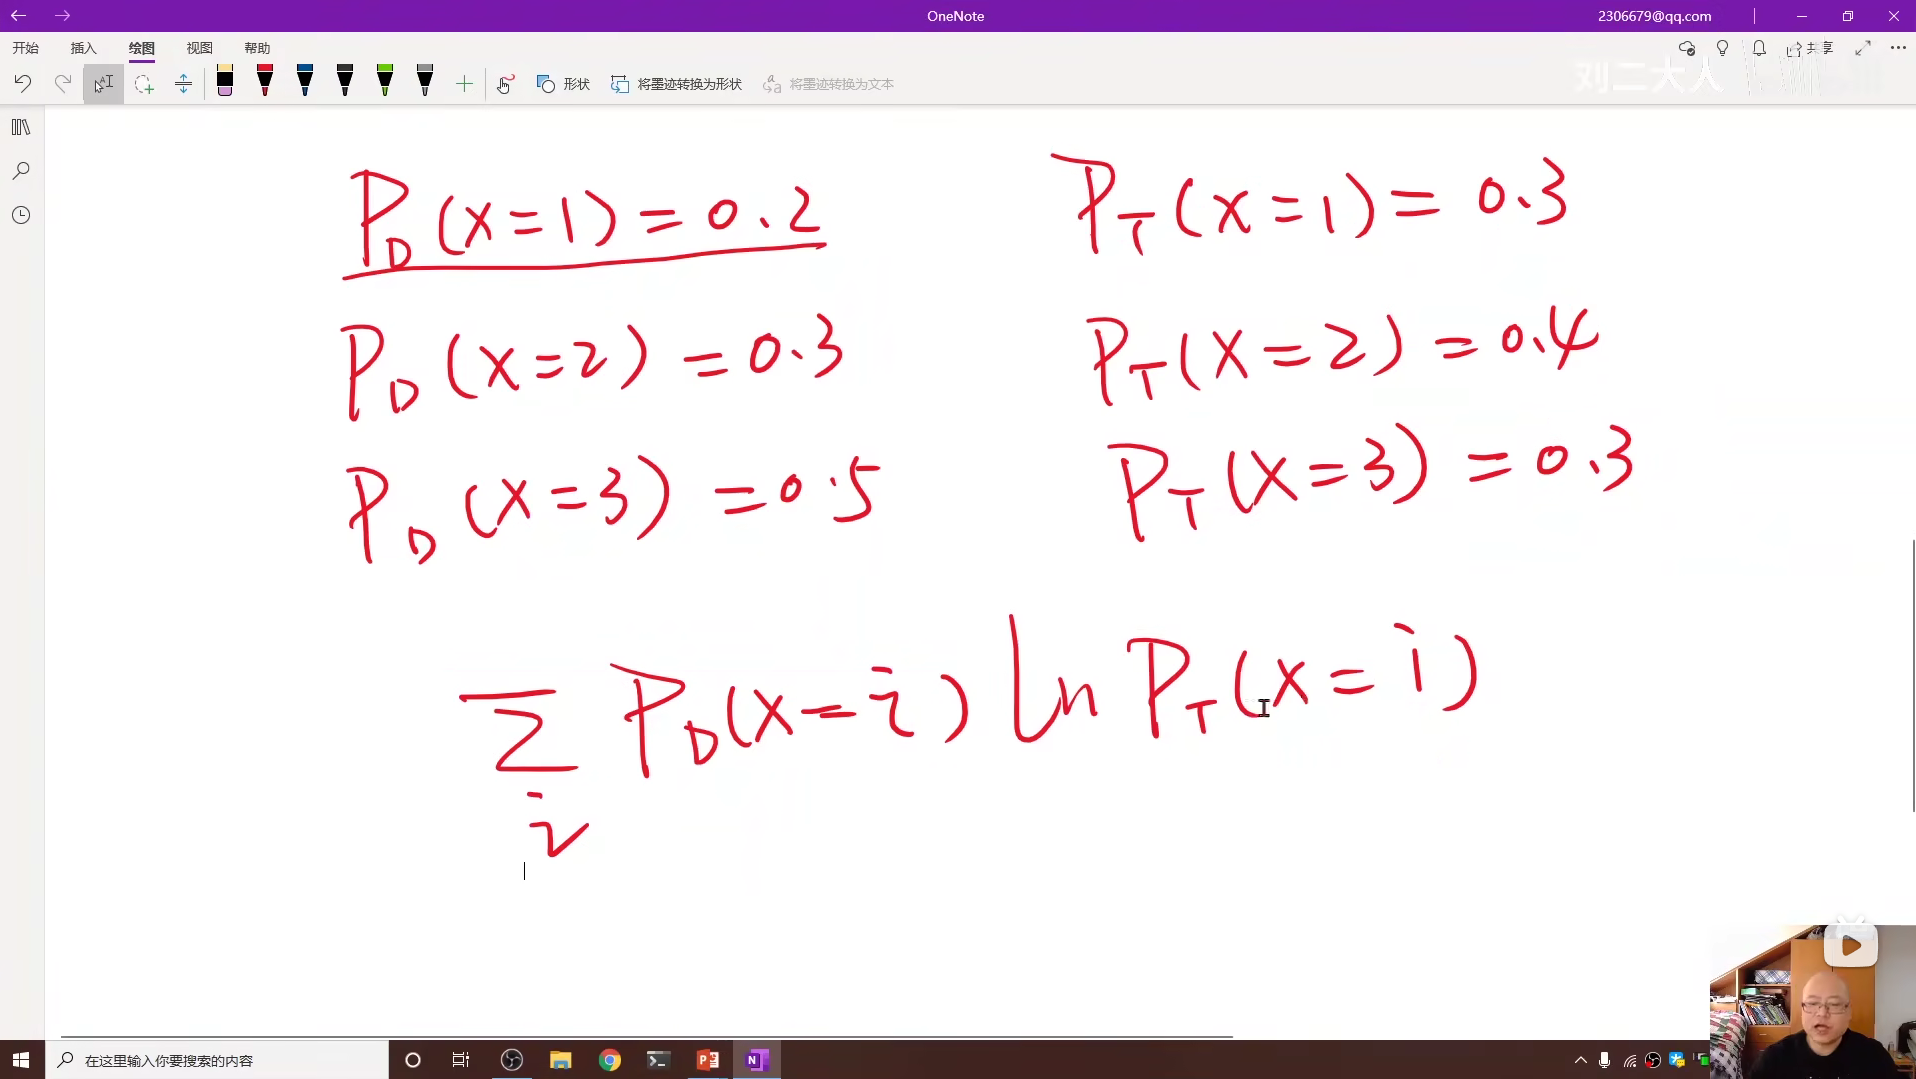 OneNote
2306679@qq.com
开始 插入 绘图 视图 帮助
共享
形状 将墨迹转换为形状 将墨迹转换为文本
刘二大人
P_D (x=1) = 0.2
P_T (x=1) = 0.3
P_D (x=2) = 0.3
P_T (x=2) = 0.4
P_D (x=3) = 0.5
P_T (x=3) = 0.3
∑_i P_D(x=i) ln P_T(x=i)
在这里输入你要搜索的内容